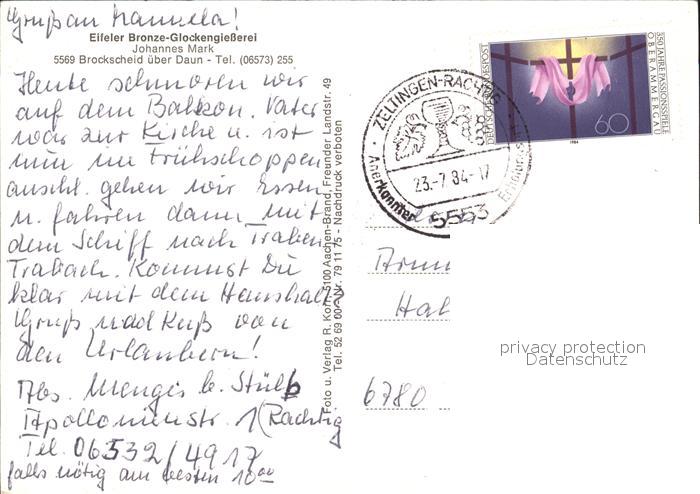 Gruß an Manuela!
Eifeler Bronze-Glockengießerei
Johannes Mark
5569 Brockscheid über Daun - Tel. (06573) 255
Heute schmoren wir
auf dem Balkon. Vater
war zur Kirche u. ist
nun im Frühschoppen
anschl. gehen wir Essen
u. fahren dann mit
dem Schiff nach Traben
Trabach. Kommst Du
klar mit dem Haushalt?
Gruß und Kuß von
den Urlaubern!
Abs. Menges b. Stülb
Apollonienstr. 1 (Rachtig
Tel. 06532/4917
falls nötig am besten 18 00
Foto u. Verlag R. Korr, 5100 Aachen-Brand, Freunder Landstr. 49
Tel. 52 69 00 79 11 75 - Nachdruck verboten
ZELTINGEN-RACHTIG
23.-7.84-17
Anerkannter Erholungsort
5553
350 JAHRE PASSIONSSPIELE
OBERAMMERGAU
DEUTSCHE BUNDESPOST
60
1984
Hal
6780
privacy protection
Datenschutz